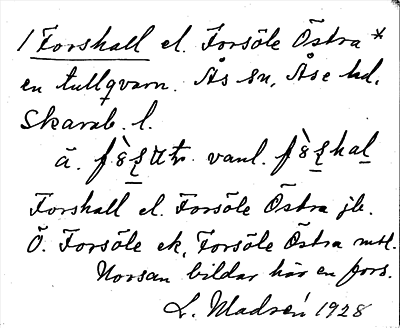 1 Forshall el. Forsöle Östra *
en tullqvarn. Ås sn, Åse hd.
Skarab. l.
ä. vanl.
Forshall el. Forsöle Östra jb.
Ö. Forsöle ek, Forsöle Östra mtl.
Norsan bildar här en fors.
L. Madsén 1928